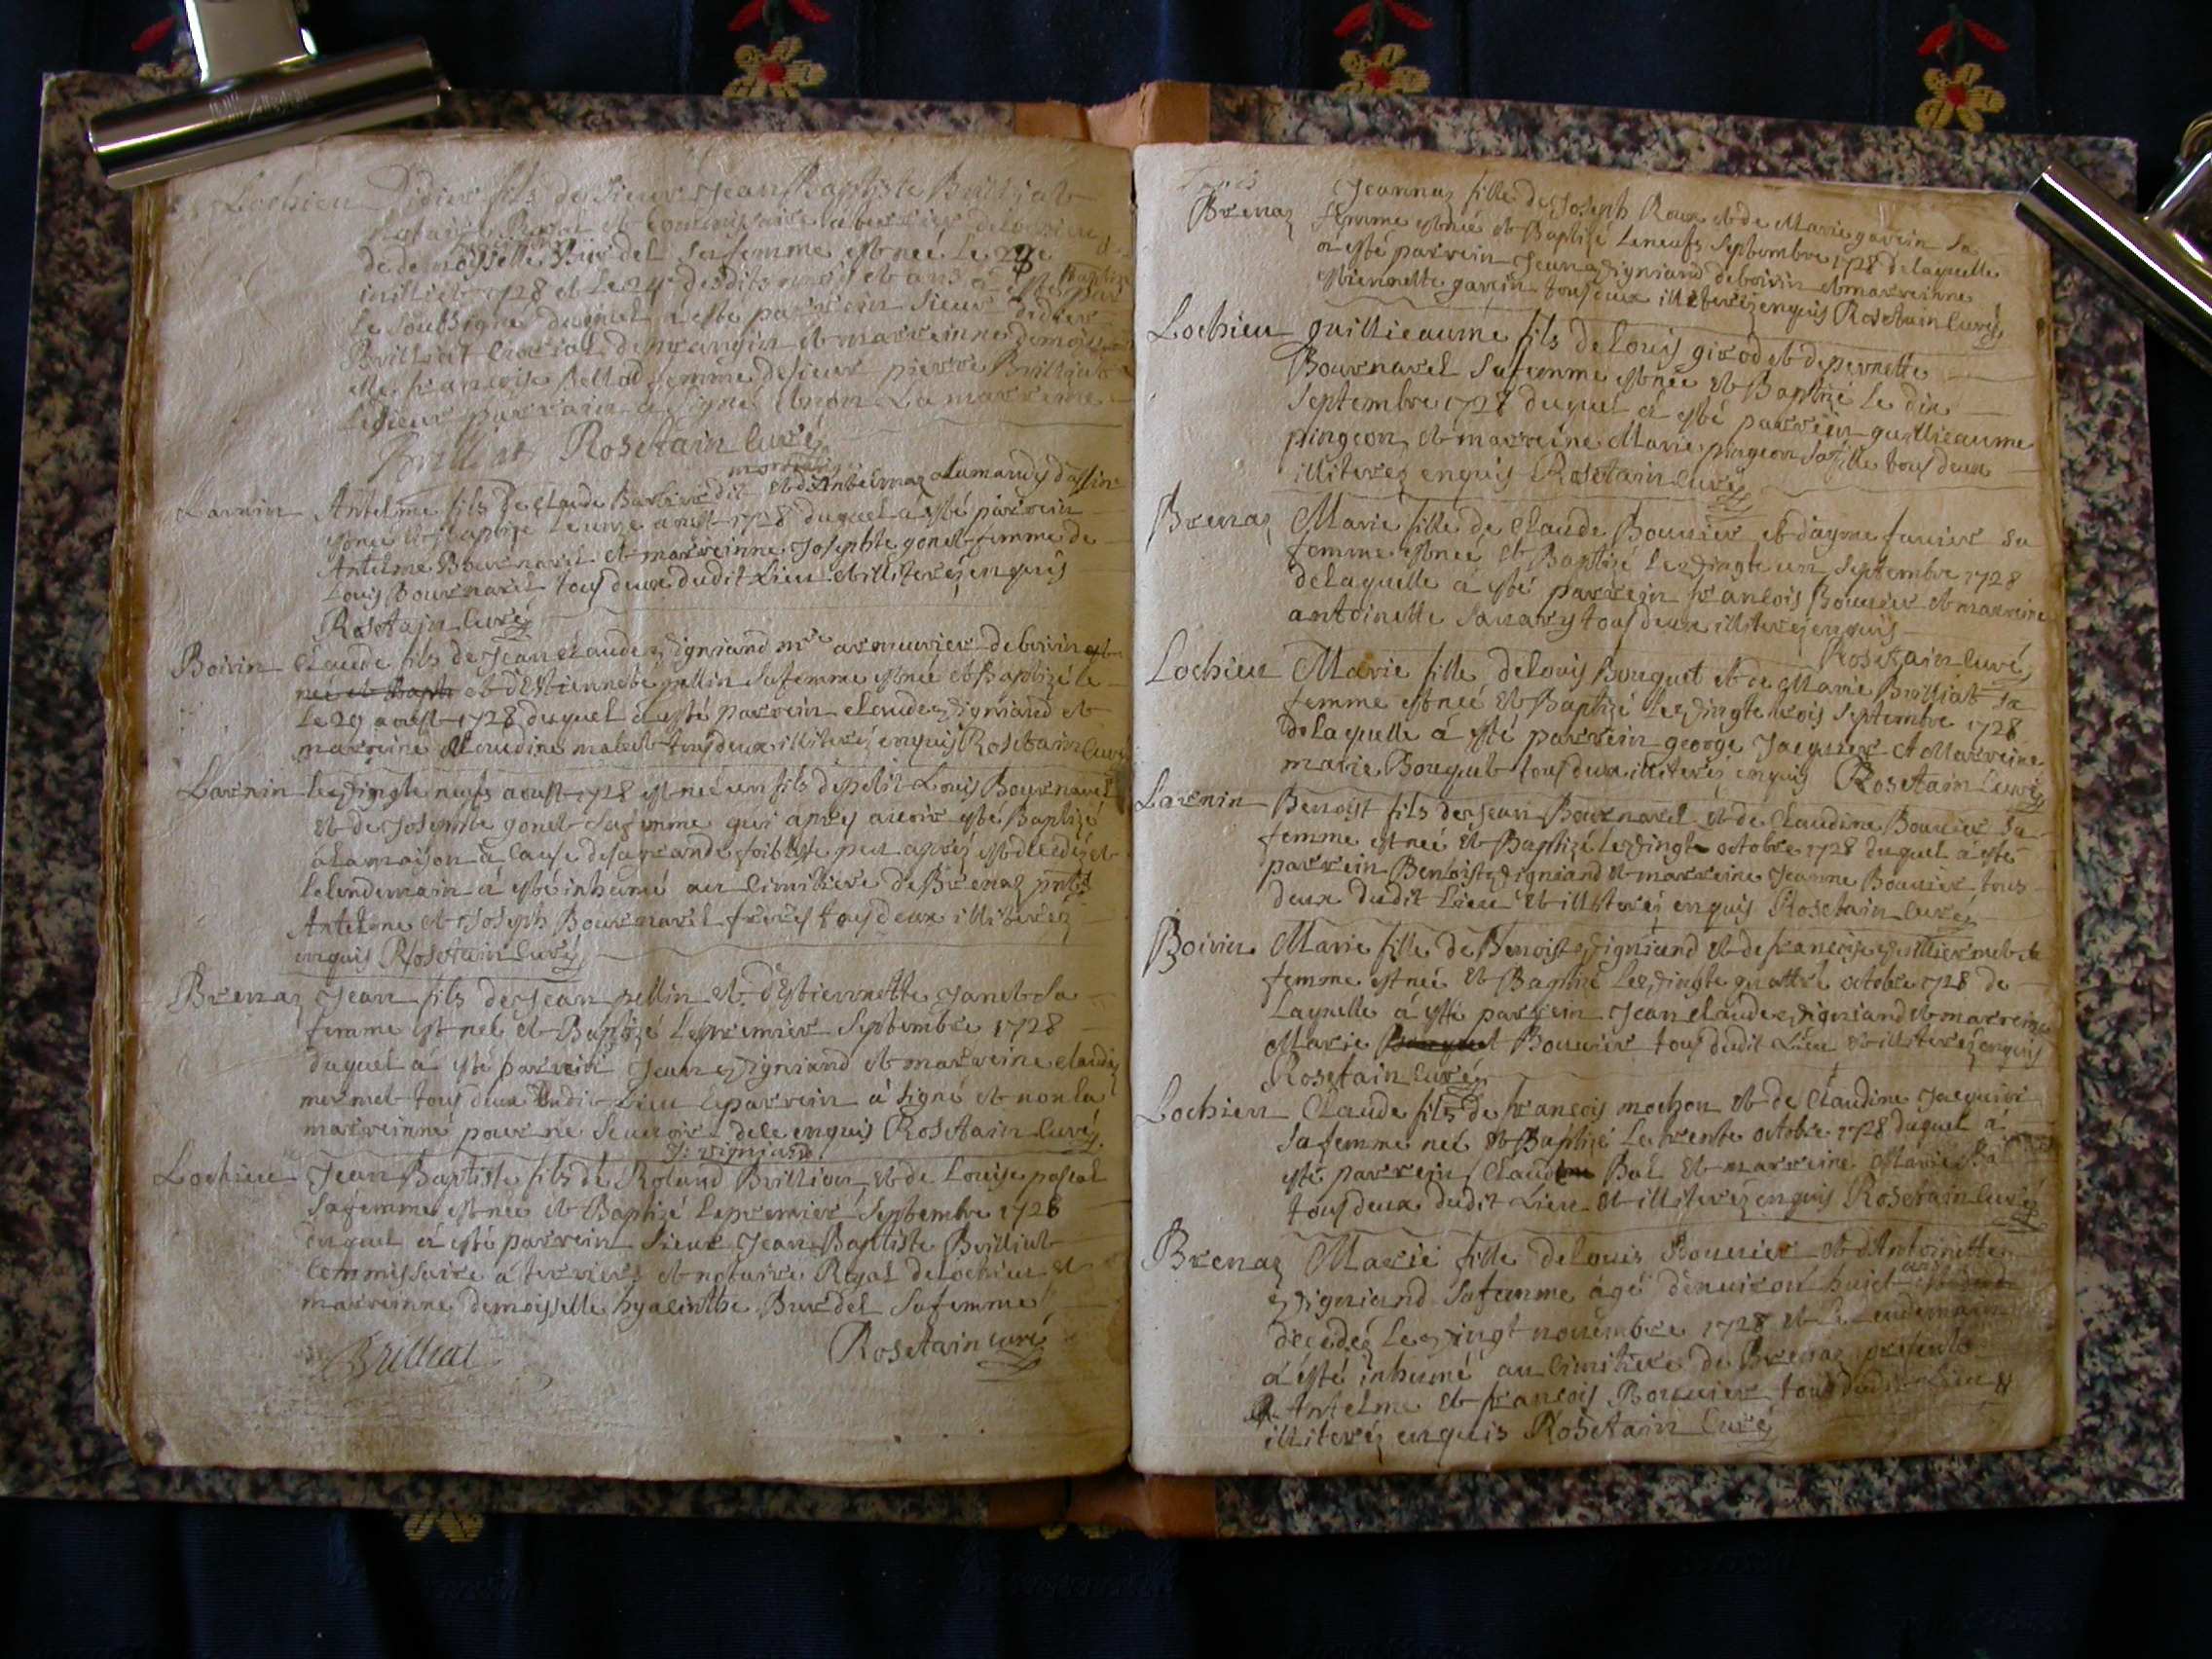 Lochieu Didier fils de Sieur Jean Baptiste Brilliat
notaire Royal et Commissaire a terrier de Lochieu
de demoisselle Burdel sa femme est neé Le
1728 et Le 24 desdits mois et ans a esté Baptizé par
Le Soubsigné duquel a esté parrein Sieur Didier
Brilliat et marreinne demois
elle francoise femme de sieur pierre Brilliat
Ledit sieur parrain a signé et non La marreine
Brilliat Rosetain Curé
Larnin Antelme fils de Claude Barbier dit et d'Antelmaz
est neé et Baptizé Le aoust 1728 duquel a esté parrein
Antelme Bournarel et marreinne Josephte gonet femme de
Louis Bournarel tous deux dudit Lieu et illiterez enquis
Rosetain Curé
Boivin Claude fils de Jean Claude Vigniand mre armurier de boivin
neé et Bapti et d'Estiennete pellin sa femme est neé et Baptizé le
Le 29 aoust 1728 duquel a esté parrein Claude Vigniand et
marreine Claudine tous deux illiterez enquis Rosetain Curé
Larnin Le Vingte neufs aoust 1728 est neé un fils de petit Louis Bournarel
et de Josephte gonet sa femme qui apres auoir esté Baptizé
a La maison a Cause de sa grande foiblesse peu aprez est decedéz et
Le Lendemain a esté inhumé au Cimitiere de Brenaz pnts
Antelme et Joseph Bournarel freres tous deux illiterez
enquis Rosetain Curé
Brenaz Jean fils de Jean pellin et d'Estiennette Janet sa
femme est neé et Baptizé Le premier Septembre 1728
duquel a esté parrein Jean Vigniand et marreine Claudaz
mermet tous deux dudit Lieu Le parrein a signé et non la
marreinne pour ne Scauoir de ce enquis Rosetain Curé
J: vigniand
Lochieu Jean Baptiste fils de Roland Brillion et de Louise pascal
sa femme est neé et Baptizé Le premier Septembre 1728
duquel a esté parrein Sieur Jean Baptiste Brilliat
Commissaire a terriers et notaire Royal de Lochieu et
marreinne demoisselle hyacinthe Burdel sa femme
Brilliat Rosetain curé
Brenaz Jeannaz fille de Joseph Roux et de Marie gavein sa
femme est neé et Baptizé Le neufs Septembre 1728 de laquelle
a esté parrein Jean Vigniand de boivin et marreinne
estiennette gavein tous deux illiterez enquis Rosetain Curé
Lochieu guillieaume fils de Louis girod et de pernette
Bournarel sa femme est neé et Baptizé Le dix
Septembre 1728 duquel a esté parrein guillieaume
pingeon et marreine Marie pingeon sa fille tous deux
illiterez enquis Rosetain Curé
Brenaz Marie fille de Claude Bouuier et d'ayme fauier sa
femme est neé et Baptizé Le Vingte un Septembre 1728
de laquelle a esté parrein francois Bouuier et marreine
antoinette Sauary tous deux illiterez enquis
Rosetain Curé
Lochieu Marie fille de Louis Bouquet et de Marie Brilliat sa
femme est neé et Baptizé Le Vingte trois Septembre 1728
de laquelle a esté parrein george Jacquier et Marreine
marie Bouquet tous deux illiterez enquis Rosetain Curé
Larnin Benoist fils de Jean Bournarel et de Claudine Bouuier sa
femme est neé et Baptizé Le Vingt octobre 1728 duquel a esté
parrein Benoist Vigniand et marreine Jeanne Bouuier tous
deux dudit Lieu et illiterez enquis Rosetain Curé
Boivin Marie fille de Benoist Vigniand et de francoise Vuilliermet sa
femme est neé et Baptizé Le Vingte quattre octobre 1728 de
Laquelle a esté parrein Jean Claude Vigniand et marreine
Marie Bouquet Bouuier tous dudit Lieu et illiterez enquis
Rosetain Curé
Lochieu Claude fils de francois mochon et de Claudine Jacquier
sa femme neé et Baptizé Le trente octobre 1728 duquel a
esté parrein Claude Bal et marreine Marie Bal
tous deux dudit Lieu et illiterez enquis Rosetain Curé
Brenaz Marie fille de Louis Bouuier et d'Antoinette
Vigniand sa femme agé d'enuiron huict ans
decedéz Le Vingt nouembre 1728 et Le Lendemain
a esté inhumé au Cimitiere de Brenaz presents
Antelme et francois Bouuier tous dudit Lieu
illiteréz enquis Rosetain Curé